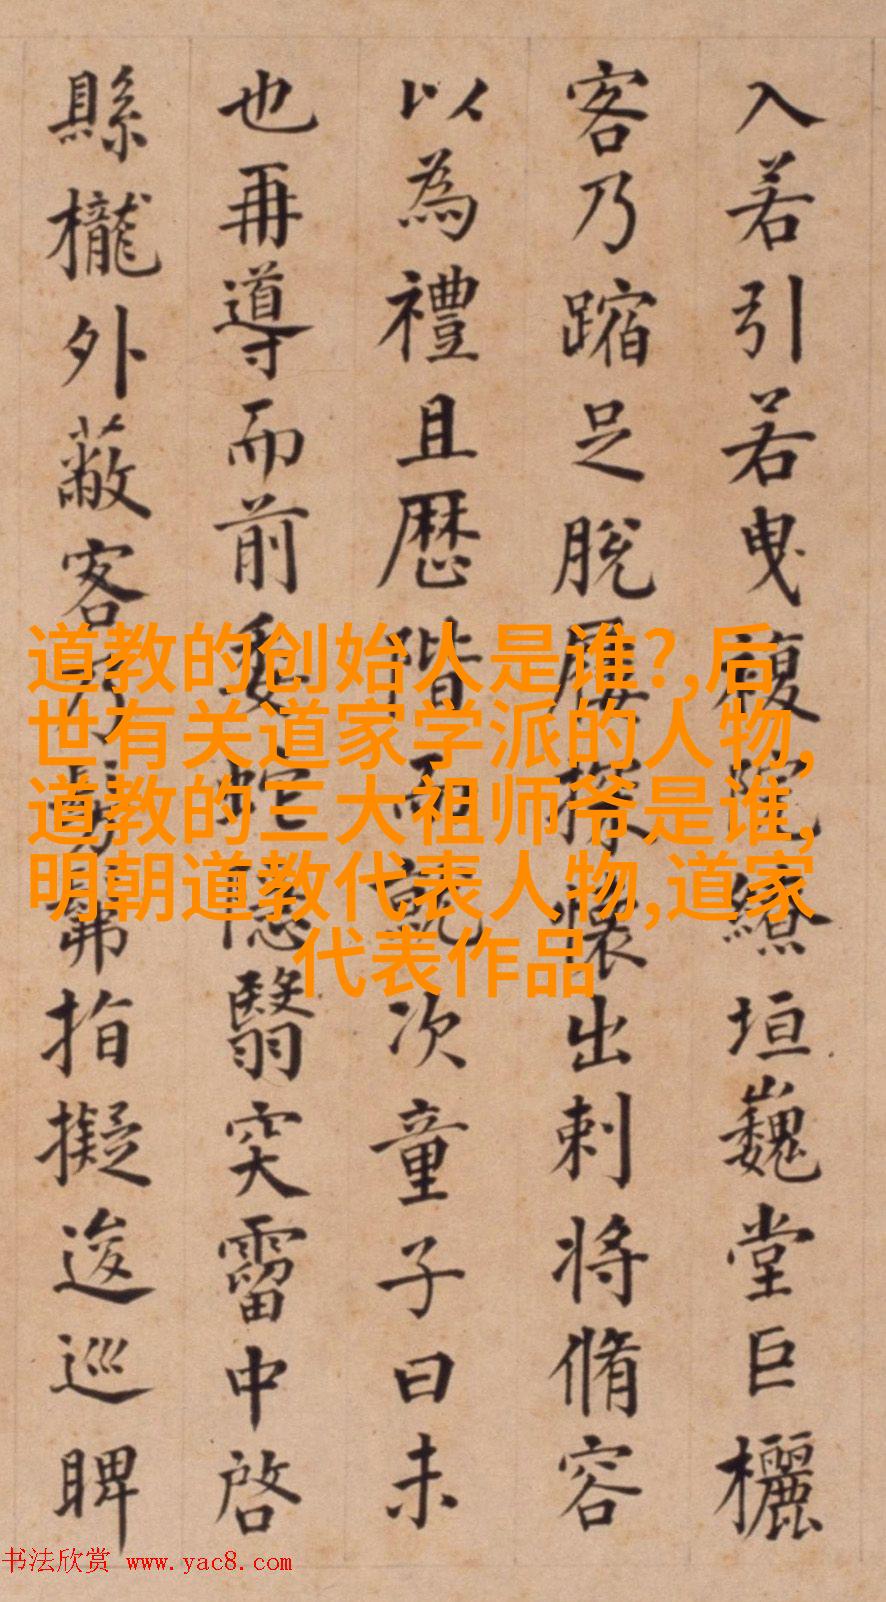 入若引若曳複宧繚垣巍堂巨欐
客乃蹜足脫屨探懷出刺將脩容
以為禮且歷階而就次童子曰未
也再導而前委蛇隱翳穾霤中啓
縣櫳外蔽客乃旁
指擬逡巡睥
道教的创始人是谁?,后
世有关道家学派的人物,
道教的三大祖师爷是谁,
明朝道教代表人物,道家
代表作品
书法欣赏 www.yac8.com